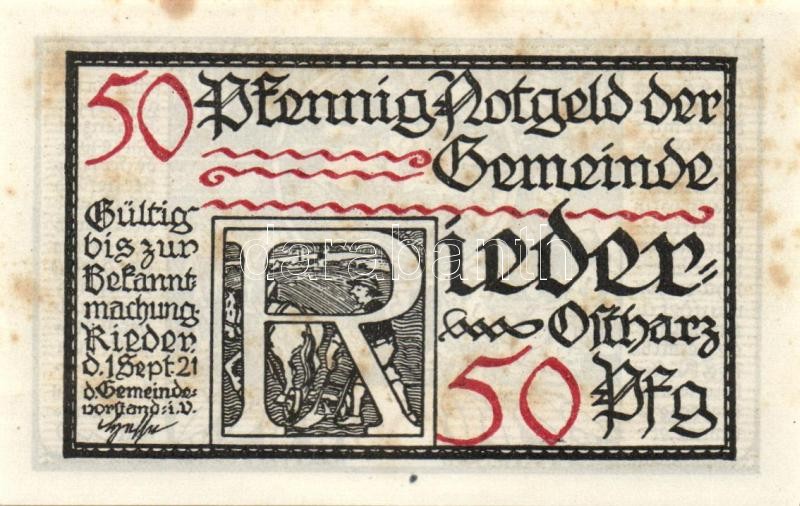 50 Pfennig Notgeld der
Gemeinde
Rieder-
Ostharz
50 Pfg
Gültig
bis zur
Bekannt-
machung.
Rieder,
d. 1 Sept. 21
d. Gemeinde-
vorstand: i. V.
darabanth